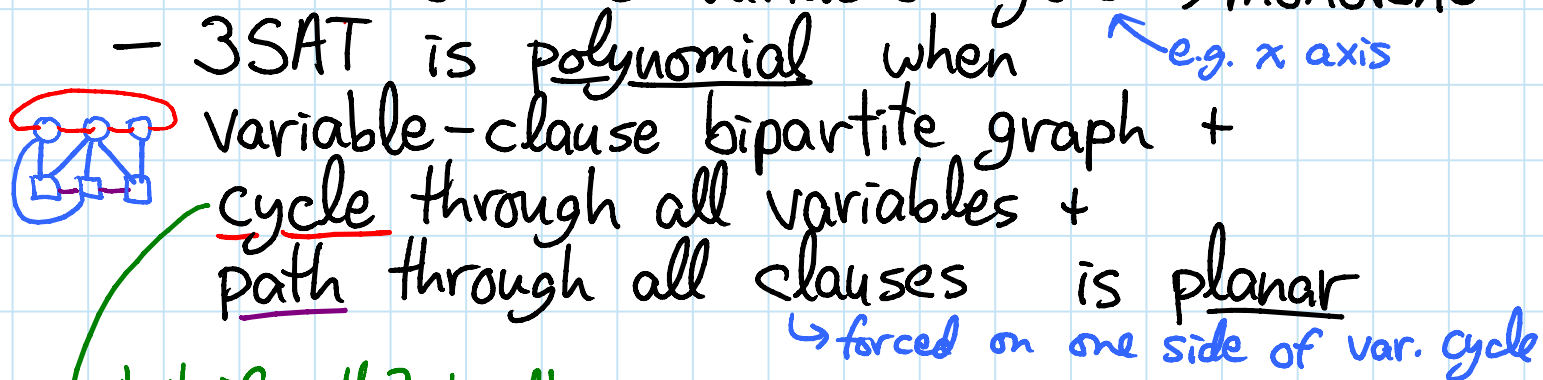 – 3SAT is polynomial when
e.g. x axis
variable-clause bipartite graph +
cycle through all variables +
path through all clauses is planar
↳ forced on one side of var. cycle